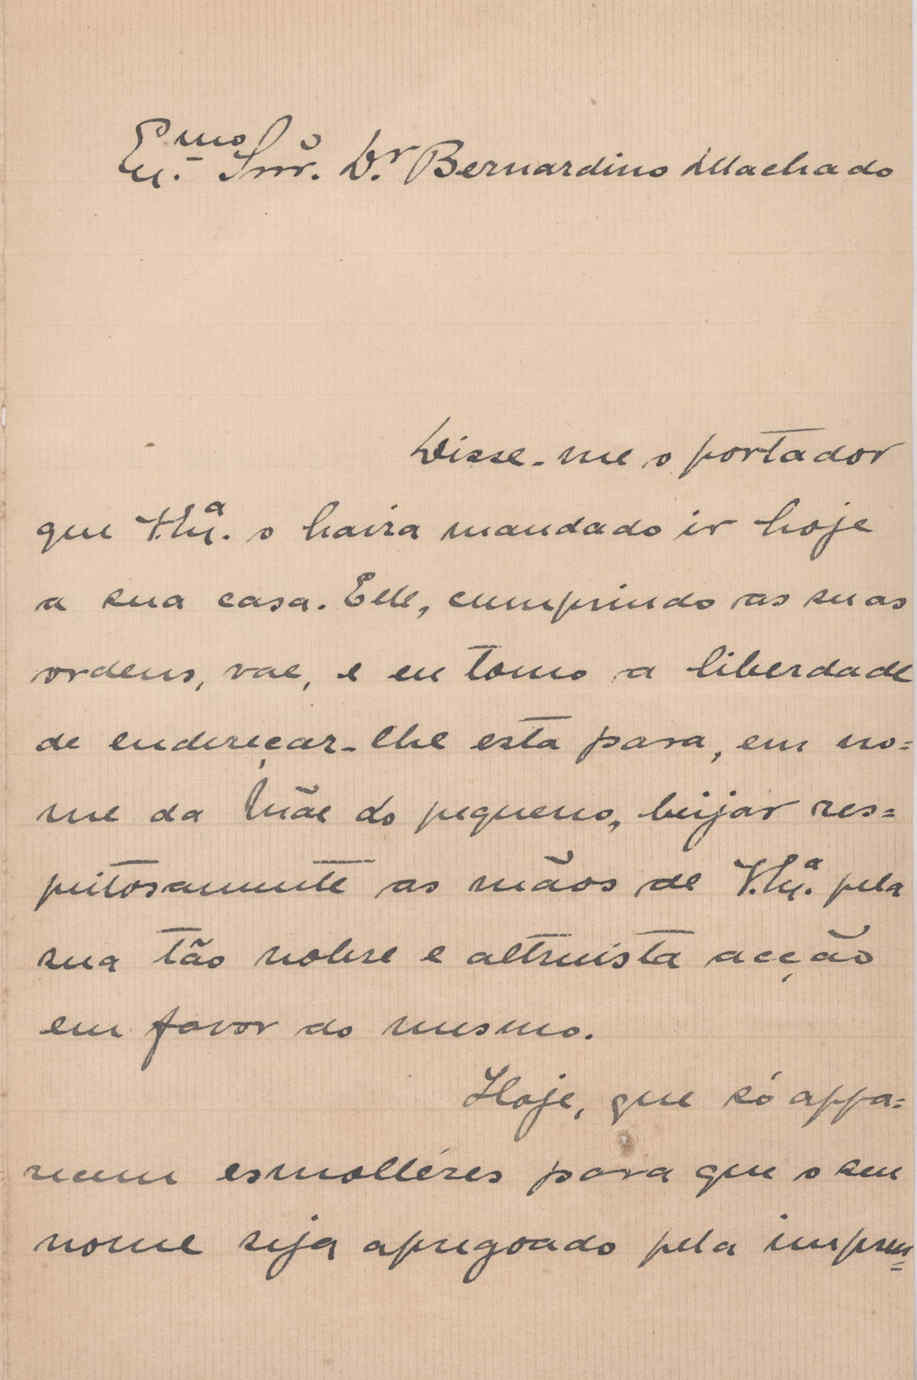 Exmo. Snr. Dr. Bernardino Machado
Disse-me o portador
que V. Exª. o havia mandado ir hoje
a sua casa. Elle, cumprindo as suas
ordens, vae, e eu tomo a liberdade
de endereçar-lhe esta para, em no=
me da Mãe do pequeno, beijar res=
peitosamente as mãos de V. Exª. pela
sua tão nobre e altruista acção
em favor do mesmo.
Hoje, que só appa=
recem esmolléres para que o seu
nome seja apregoado pela impren=